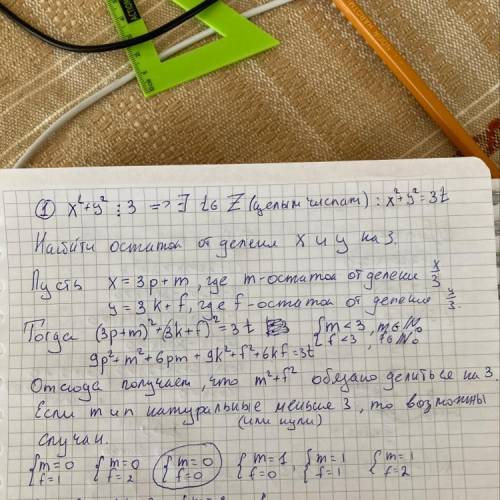 ① x²+y² ⋮ 3 => ∃ t∈ Z (целым числам) : x²+y² = 3t
Найти остаток от деления x и y на 3.
Пусть x = 3p+m, где m-остаток от деления x/3
y = 3k+f, где f-остаток от деления y/3.
Тогда (3p+m)²+(3k+f)²=3t { m<3, m∈N₀
f<3, f∈N₀
9p²+m²+6pm+9k²+f²+6kf=3t
Отсюда получает, что m²+f² обязано делиться на 3
Если m и n натуральные меньше 3, то возможны
(или нули)
случаи.
{ m=0 { m=0 { m=0 { m=1, { m=1 { m=1
f=1 f=2 f=0 f=0 f=1 f=2